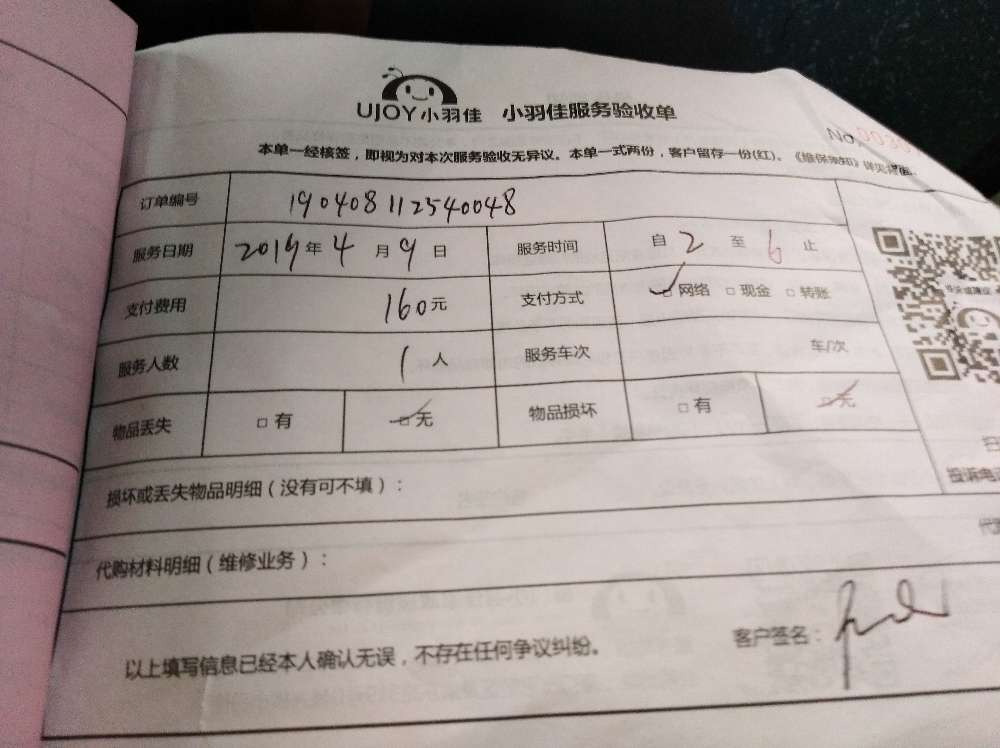 UJOY小羽佳 小羽佳服务验收单
No.0030
本单一经核签，即视为对本次服务验收无异议。本单一式两份，客户留存一份(红)。《维保须知》详见背面.
订单编号 190408112540048
服务日期 2019年4月9日 服务时间 自2至6止
支付费用 160元 支付方式 ☑网络 □现金 □转账
服务人数 1人 服务车次 车/次
物品丢失 □有 ☑无 物品损坏 □有 ☑无
扫
投诉电
损坏或丢失物品明细（没有可不填）：
代
代购材料明细（维修业务）：
以上填写信息已经本人确认无误，不存在任何争议纠纷。 客户签名：